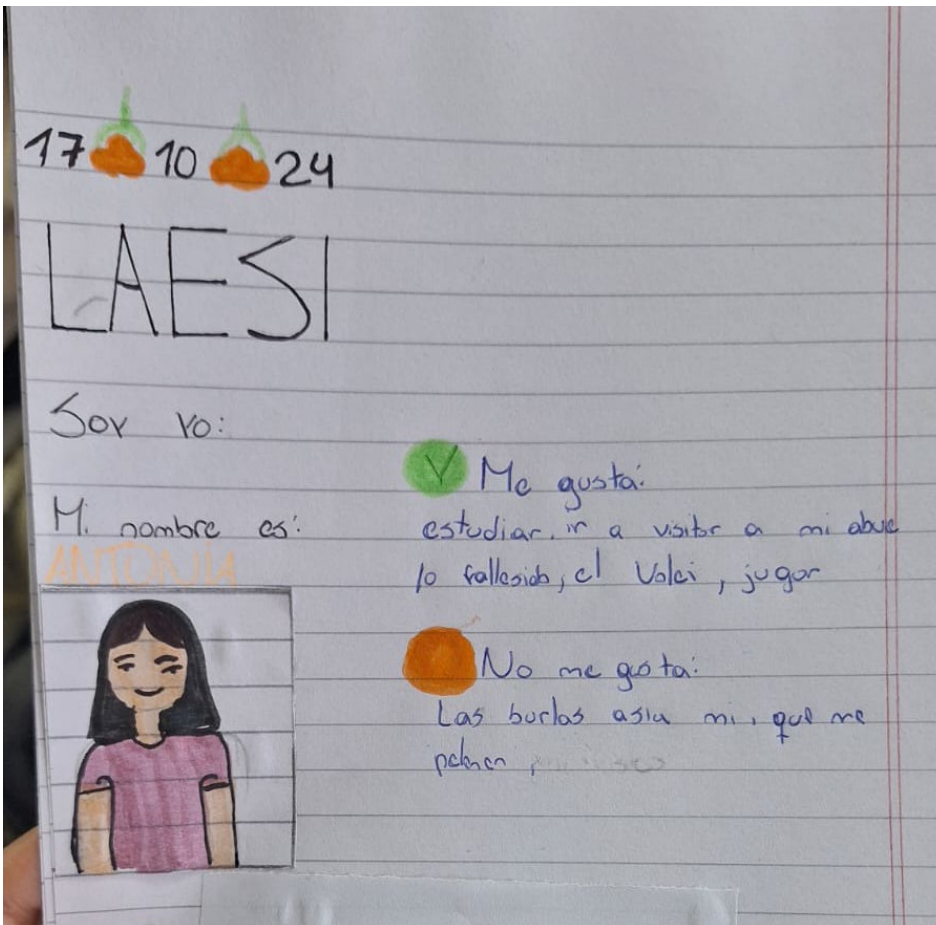 17 10 24
LAESI
Soy yo:
Mi nombre es:
ANTONIA
V Me gusta:
estudiar, ir a visitar a mi abue
lo fallesido, el Volei, jugar
No me gusta:
Las burlas asia mi, que me